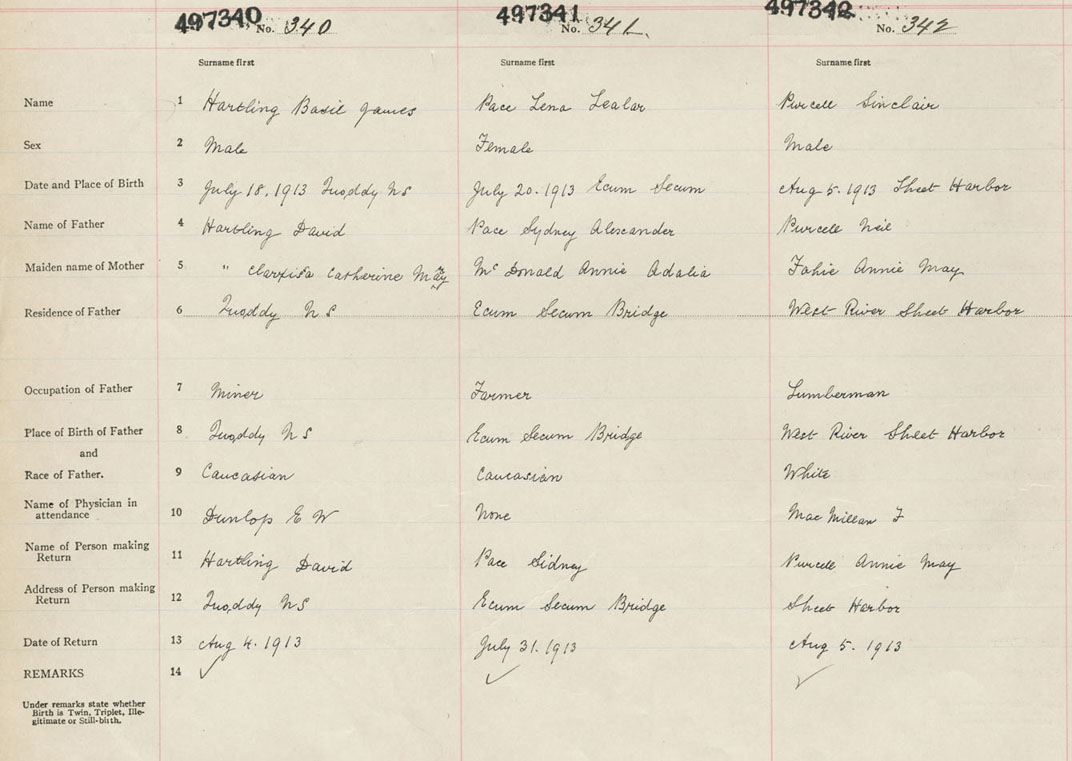 497340 No. 340 497341 No. 341. 497342 No. 342
Surname first Surname first Surname first
Name 1 Hartling Basil James Pace Lena Lealar Purcell Sinclair
Sex 2 Male Female Male
Date and Place of Birth 3 July 18, 1913 Quoddy NS July 20. 1913 Ecum Secum Aug 5. 1913 Sheet Harbor
Name of Father 4 Hartling David Pace Sydney Alexander Purcell Neil
Maiden name of Mother 5 " Catherine May McDonald Annie Adalia Fahie Annie May
Residence of Father 6 Quoddy NS Ecum Secum Bridge West River Sheet Harbor
Occupation of Father 7 Miner Farmer Lumberman
Place of Birth of Father 8 Quoddy NS Ecum Secum Bridge West River Sheet Harbor
and
Race of Father. 9 Caucasian Caucasian White
Name of Physician in
attendance 10 Dunlop E W None MacMillan F
Name of Person making
Return 11 Hartling David Pace Sidney Purcell Annie May
Address of Person making
Return 12 Quoddy NS Ecum Secum Bridge Sheet Harbor
Date of Return 13 Aug 4. 1913 July 31. 1913 Aug 5. 1913
REMARKS 14 ✓ ✓ ✓
Under remarks state whether
Birth is Twin, Triplet, Ille-
gitimate or Still-birth.